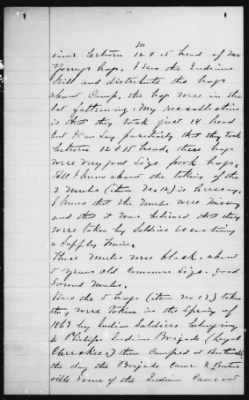 30
since between 12 & 15 head of Mr
Youngs hogs. I saw the Indians
Kill and distribute the hogs
about Camp, the hogs were in the
lot fattening. My recollection
is that they took just 14 head
but I can say positively that they took
between 12 & 15 head, these hogs
were very good size pork hogs.
All I know about the taking of the
2 Mules (item No 12) is hearsay,
I know that the Mules were missing
and that it was believed that they
were taken by Soldiers
a Supply Train.
These Mules were black, about
5 years old Common Size, good
Sound Mules.
Was the 5 hogs (item No 13) taken
they were taken in the Spring of
1863 by Indian Soldiers belonging
to Philips Indian Brigade (Loyal
Cherokees) then Camped at Bentonville
the day the Brigade Came to Benton
ville Some of the Indians Came out